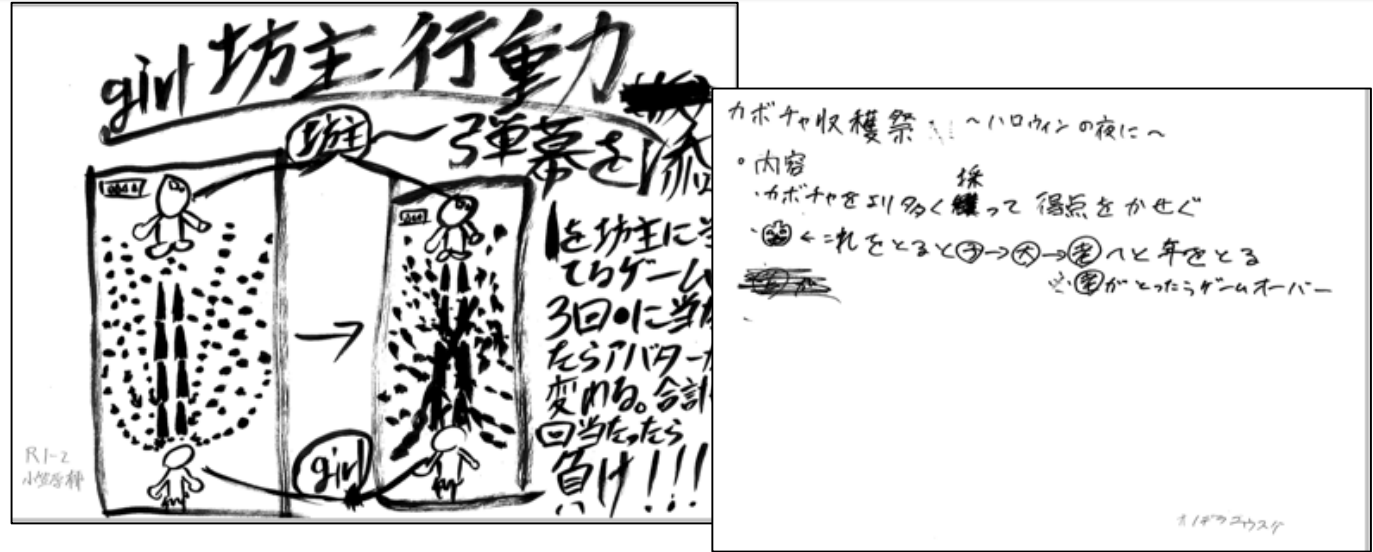 girl 坊主行動
坊主
弾幕を
を坊主に当
てるゲーム
3回●に当た
たらアバターが
変わる。合計
回当たったら
負け!!!
girl
R1-2
カボチャ収穫祭 ～ハロウィンの夜に～
◦内容
・カボチャをより多く採って得点をかせぐ
・ ←これをとると子→大→老へと年をとる
※老がとったらゲームオーバー